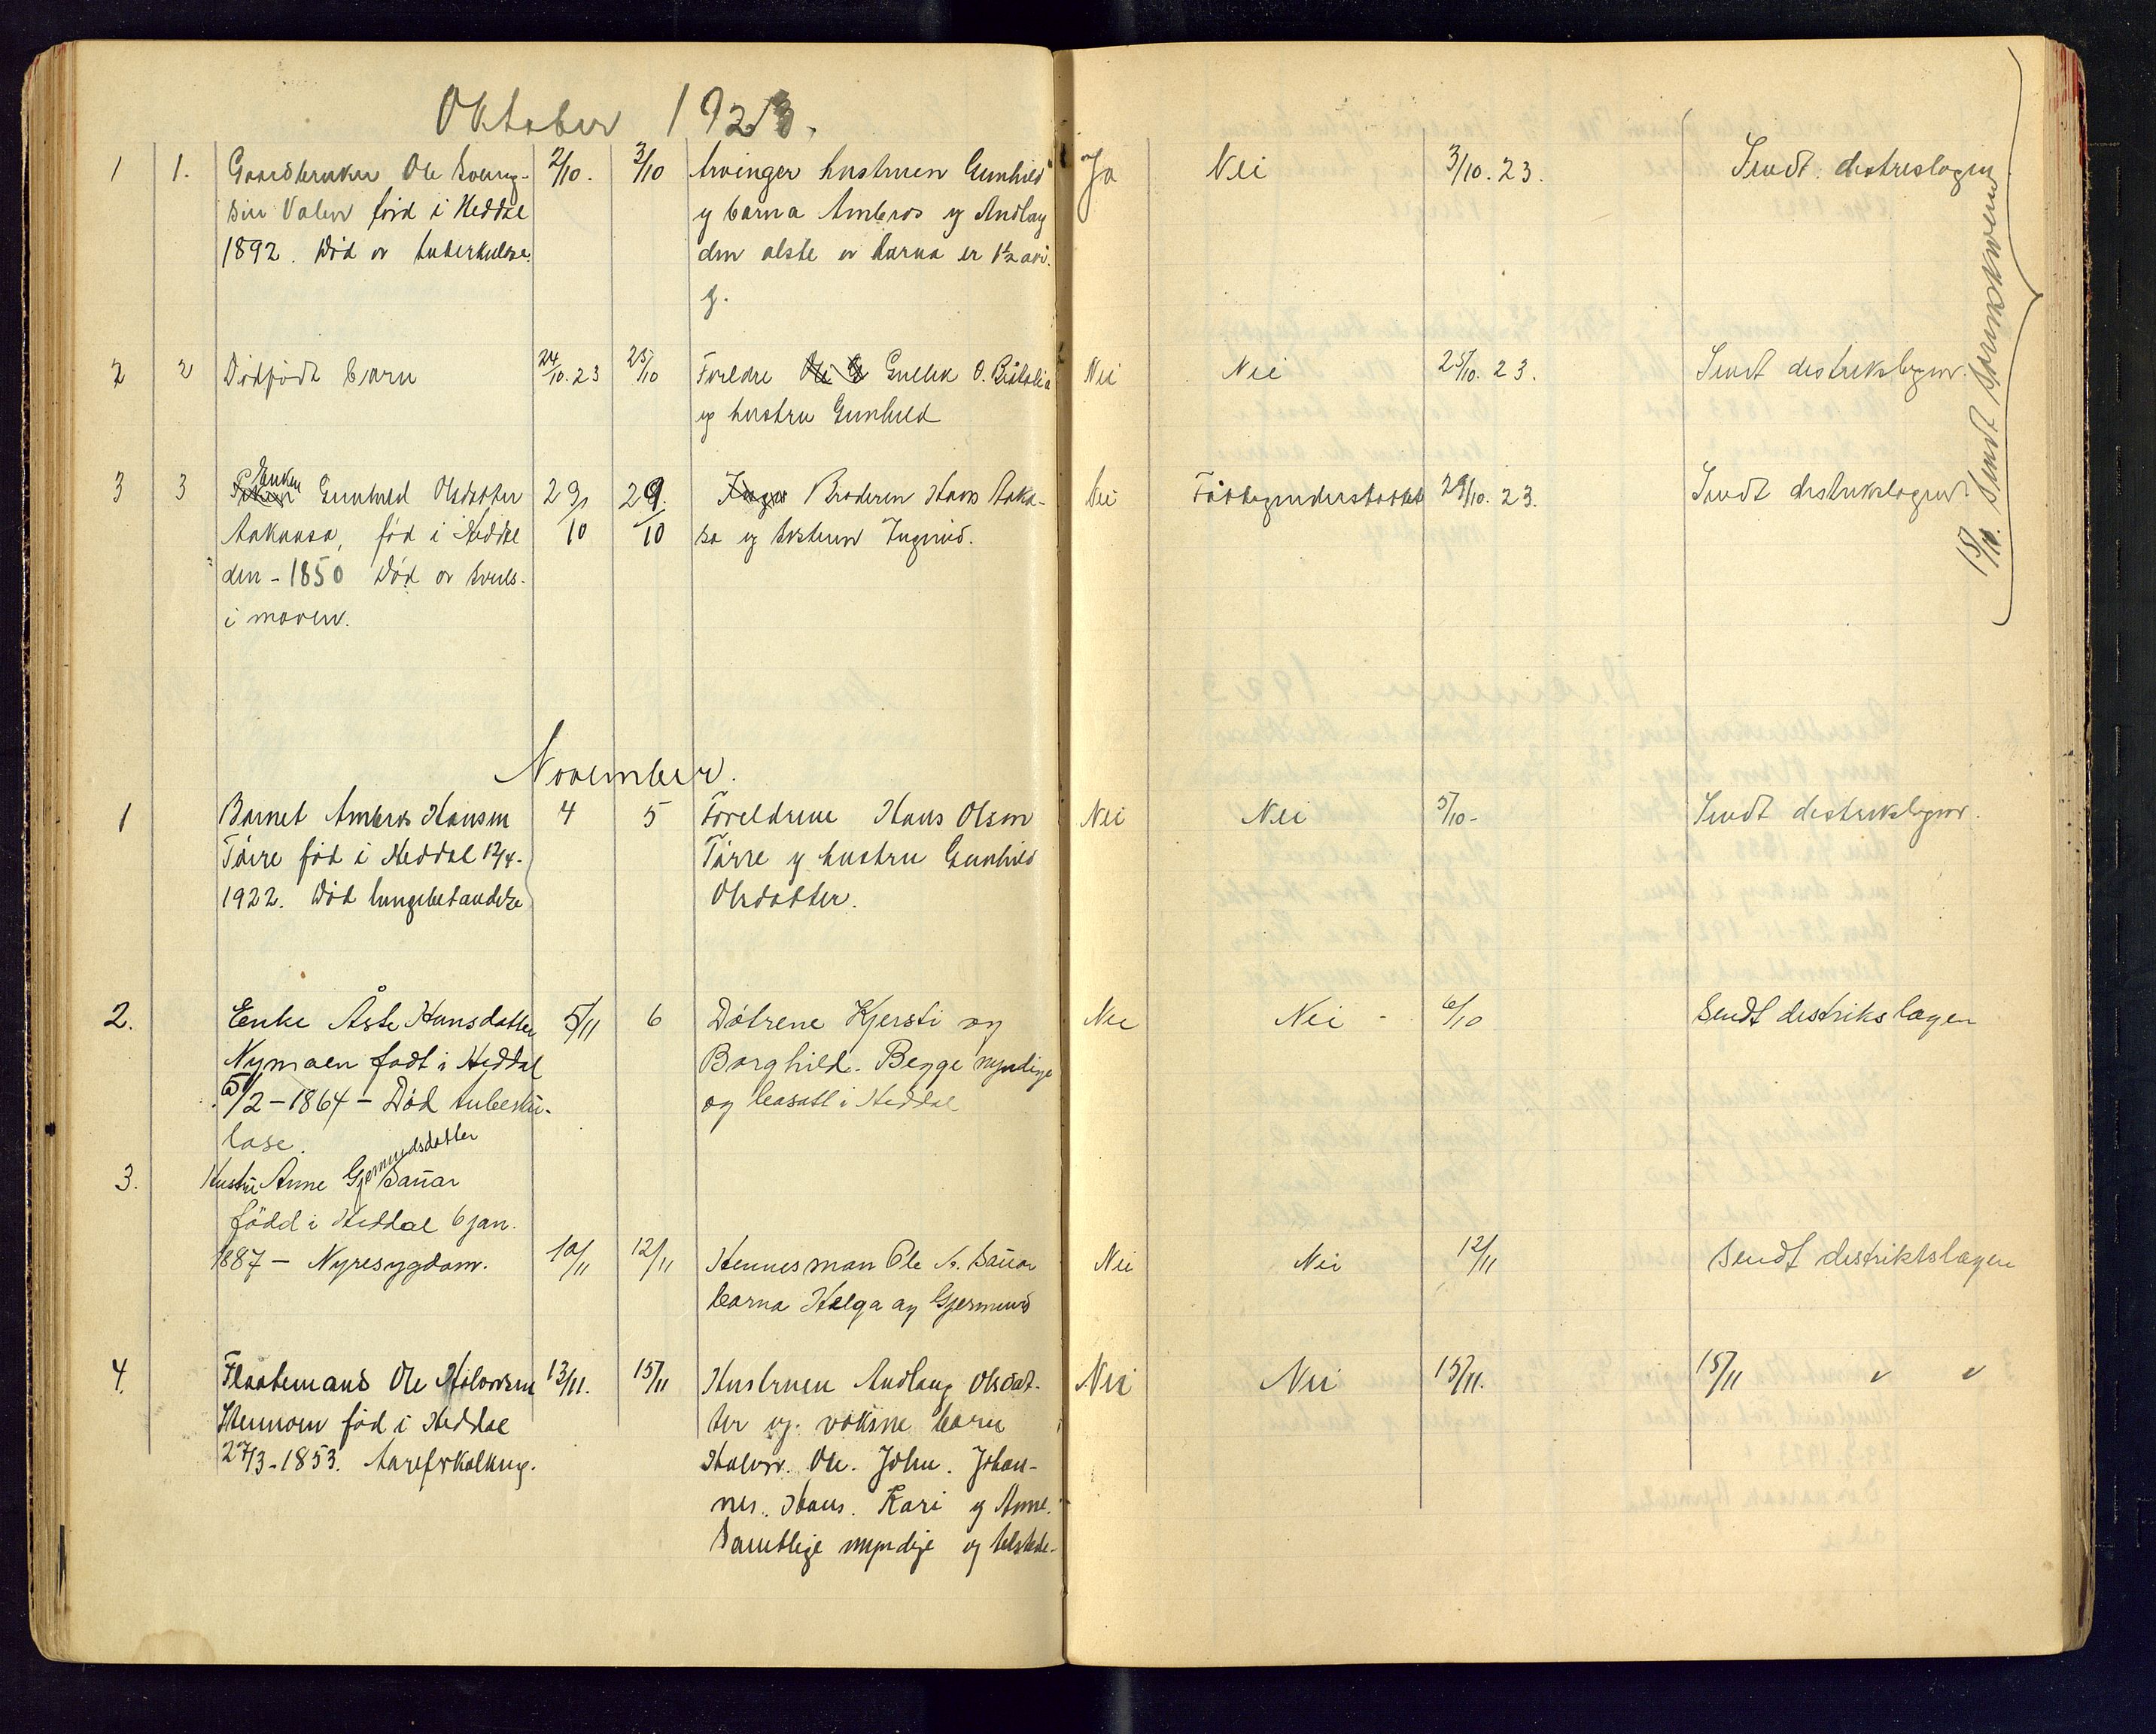 Oktober 1923.
1 1. Gaardbruker Ole Sveing- 2/10. 3/10 Arvinger hustruen Gunhild Ja Nei 3/10. 23. Sendt distrikslægen
sen Valen föd i Heddal og barna Ambros og Andlaug
1892. Död av tuberkulose. den elste av barna er 1½ aar.
g.
2 2 Dödfödt barn 24/10. 23 25/10 Foreldre Gullek O. Nei Nei 25/10. 23. Sendt distrikslegen.
og hustru Gunhild
Enken
3 3 Gunhild Olsdatter 29/10 29./10 Broderen Hans Aaka- Nei 29/10. 23. Sendt distrikslegen.
Aakaasa, föd i Heddal sa og søsteren Ingerid.
den - 1850 Död av svuls-
i maven.
15/10. Sendt Sorenskriveren
November.
1 Barnet Ambros Hansen 4 5 Foreldrene Hans Olsen Nei Nei 5/10- Sendt distrikslegen.
Tärre föd i Heddal 12/4- Tärre og hustru Gunhild
1922. Död lungebetændelse Olsdatter.
2. Enke Åste Hansdatter 5/11 6 Døtrene Kjersti og Nei Nei - 6/10 Sendt distrikslægen
Nymoen født i Heddal Borghild. Begge myndige
5/2 - 1864 - Död tuberku- og bosatt i Heddal
lose.
Gjermundsdatter
3. Hustru Anne Sauar
född i Heddal 6 jan.
1887 - Nyresygdom. 10/11 12/11 Hennes man Ole N. Sauar Nei Nei 12/11 Sendt distriktslægen
barna Helga og Gjermund
4. Fløtemand Ole Halvorsen 13/11. 15/11 Hustruen Andlaug Olsdat- Nei Nei 15/11. 15/11 " "
föd i Heddal ter og voksne barn
27/3 - 1853. Aareforkalkning. Halvor. Ole. John. Johan-
nes. Hans. Kari og Anne.
Samtlige myndige og telstede-